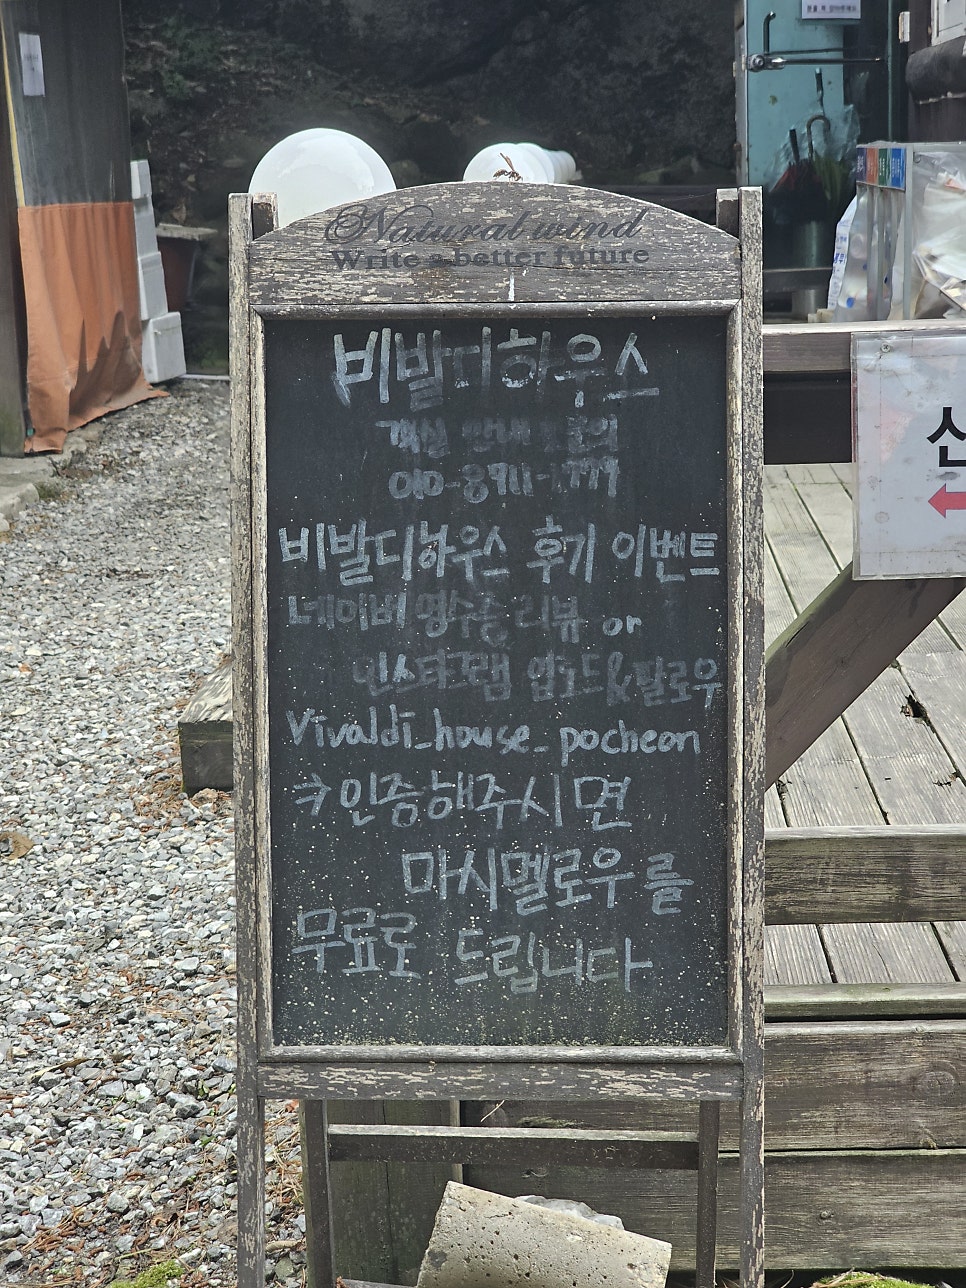 Natural wind
Write a better future
비발디하우스
객실 안내 및 문의
비발디하우스 후기 이벤트
네이버 영수증 리뷰 or
인스타그램 업로드&팔로우
vivaldi_house_pocheon
→ 인증해주시면
마시멜로우를
무료로 드립니다